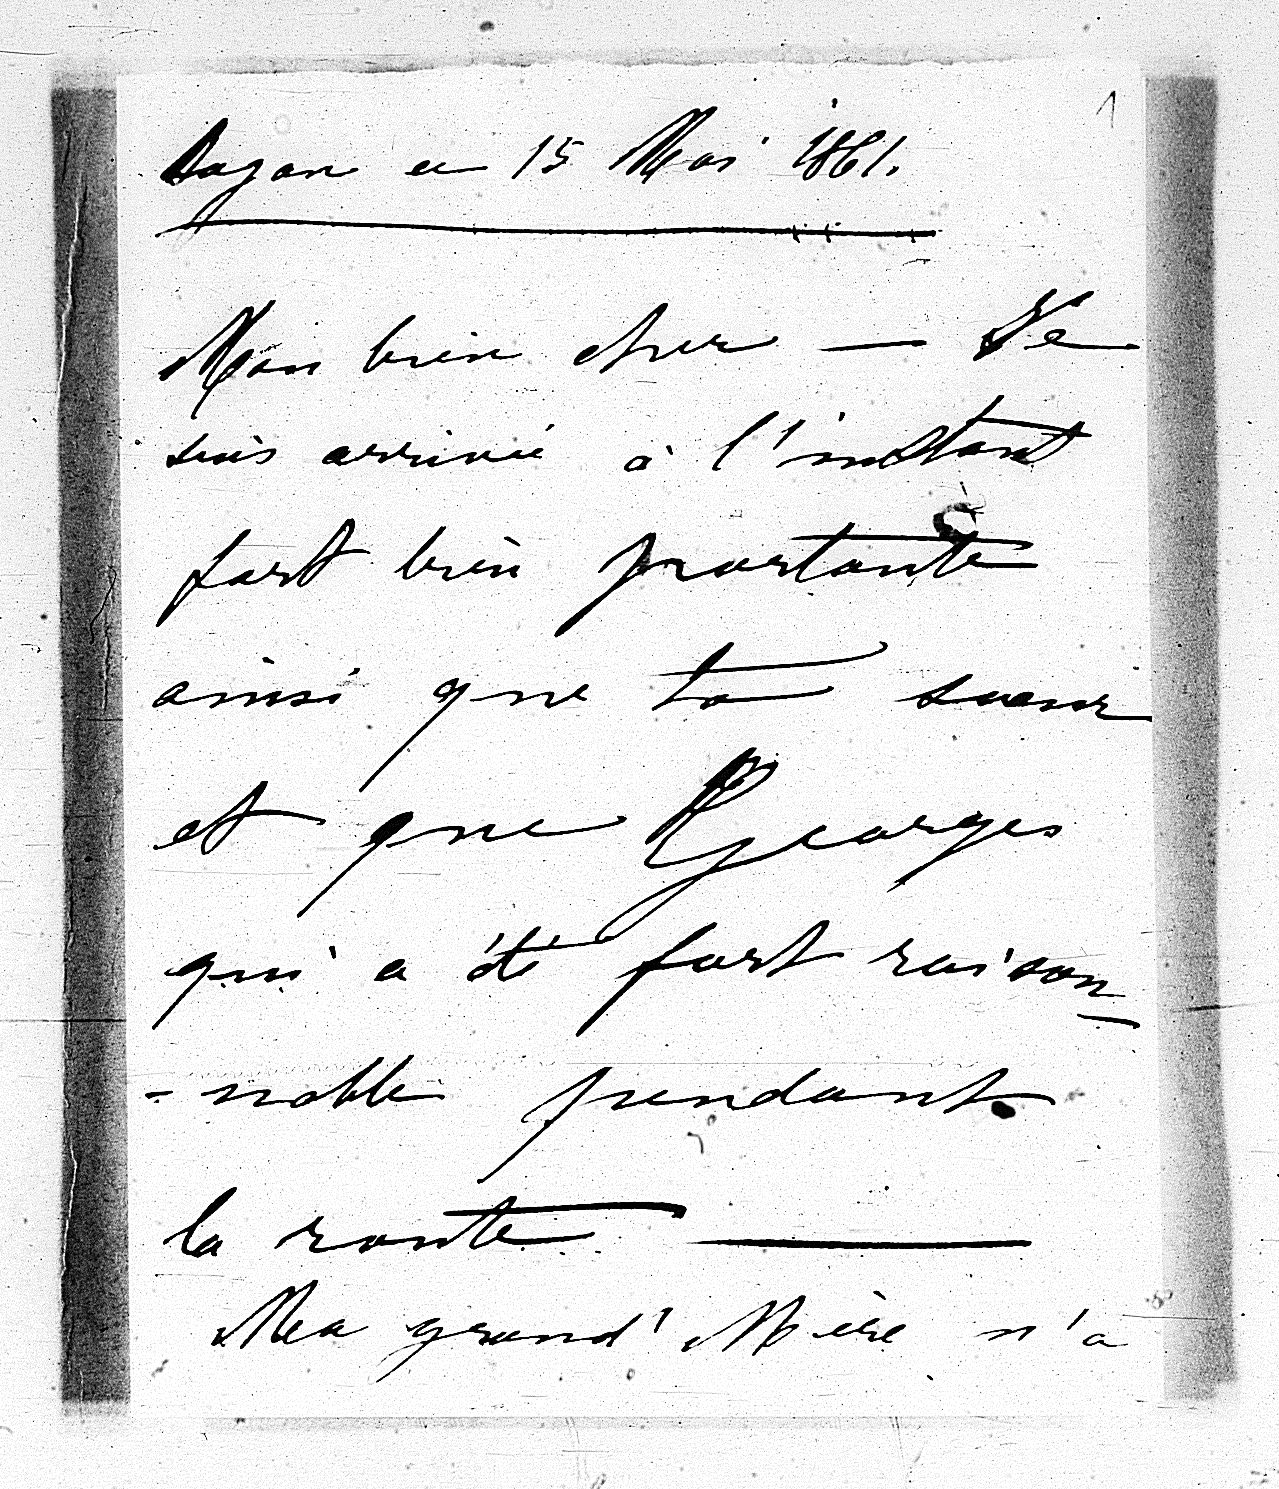 1
Bazan ce 15 Mai 1861.
Mon bien cher — Je
suis arrivée à l'instant
fort bien portante
ainsi que ta soeur
et que Georges
qui a été fort raison-
-nable pendant
la route —
Ma grand' Mère n'a